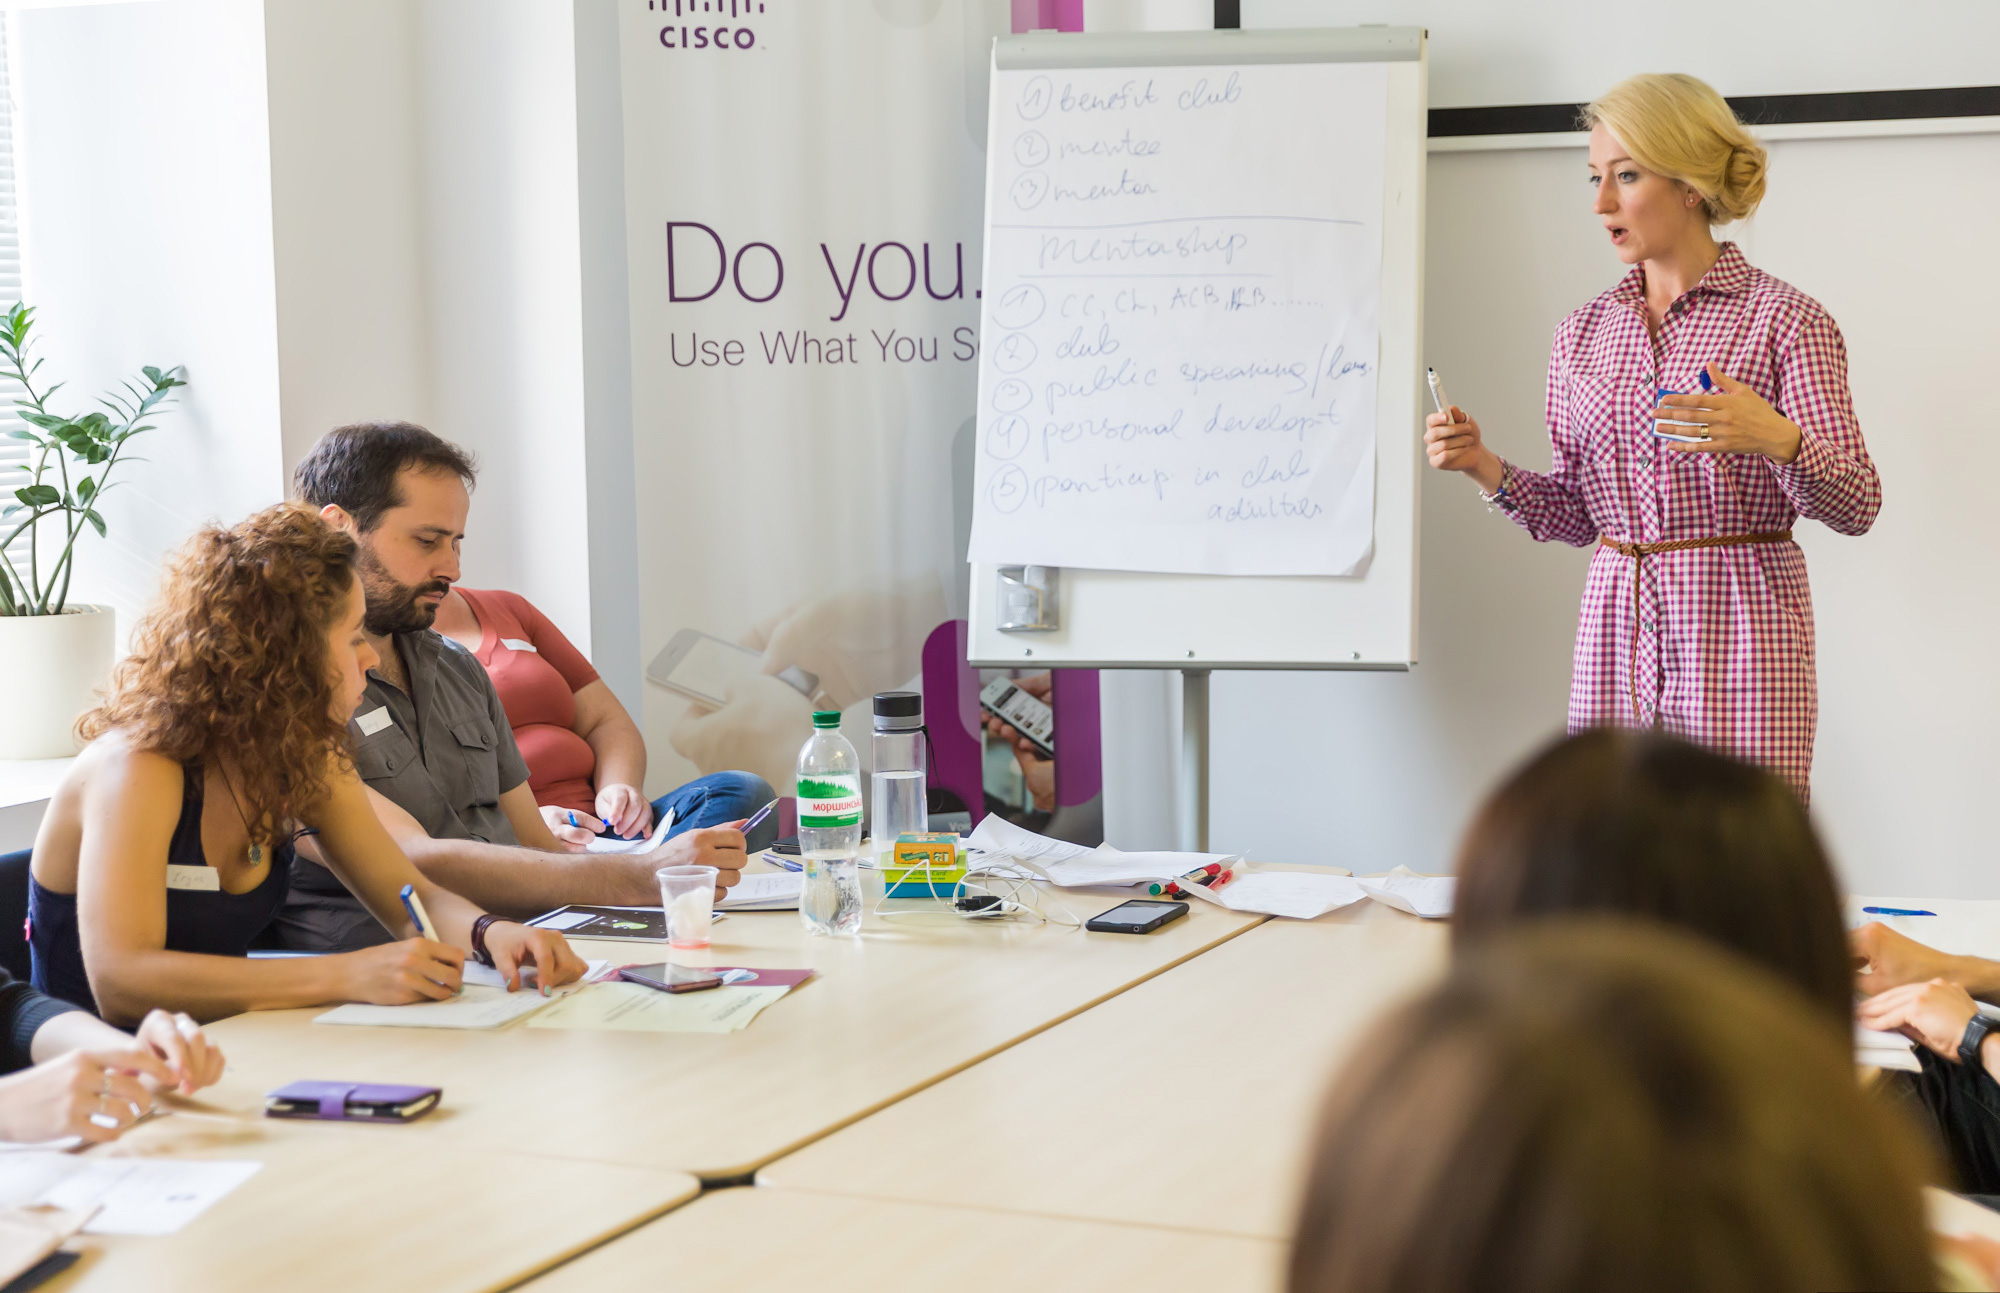 CISCO
Do you.
Use What You S
① benefit club
② mentee
③ mentor
Mentaship
① CC, CL, ACB, ALB.......
② club
③ public speaking/
④ personal developt
⑤ particip in club
моршинськ